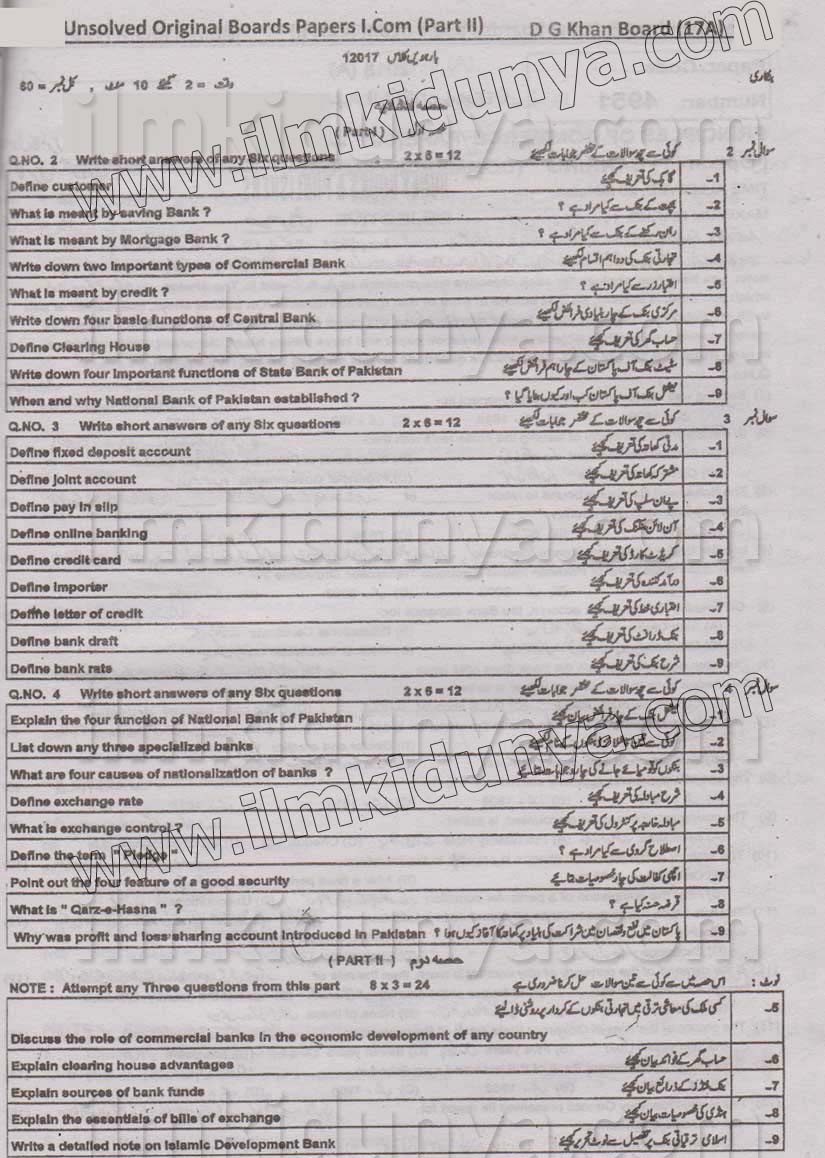 Unsolved Original Boards Papers I.Com (Part II) D G Khan Board (17A)
12017
وقت = 2 گھنٹے 10 منٹ , کل نمبر = 60
(Part I)
Q.NO. 2 Write short answers of any Six questions 2 x 6 = 12 کوئی سے چھ سوالات کے مختصر جوابات لکھیئے سوال نمبر 2
Define customer گاہک کی تعریف کیجئے 1-
What is meant by saving Bank ? بچت کے بنک سے کیا مراد ہے ؟ 2-
What is meant by Mortgage Bank ? رہن رکھنے کے بنک سے کیا مراد ہے ؟ 3-
Write down two important types of Commercial Bank تجارتی بنک کی دو اہم اقسام لکھیئے 4-
What is meant by credit ? اعتبار زر سے کیا مراد ہے ؟ 5-
Write down four basic functions of Central Bank مرکزی بنک کے چار بنیادی فرائض لکھیئے 6-
Define Clearing House حساب گھر کی تعریف کیجئے 7-
Write down four Important functions of State Bank of Pakistan سٹیٹ بنک آف پاکستان کے چار اہم فرائض لکھیئے 8-
When and why National Bank of Pakistan established ? نیشنل بنک آف پاکستان کب اور کیوں بنایا گیا ؟ 9-
Q.NO. 3 Write short answers of any Six questions 2 x 6 = 12 کوئی سے چھ سوالات کے مختصر جوابات لکھیئے سوال نمبر 3
Define fixed deposit account مدتی کھاتہ کی تعریف کیجئے 1-
Define joint account مشترکہ کھاتہ کی تعریف کیجئے 2-
Define pay in slip پے ان سلپ کی تعریف کیجئے 3-
Define online banking آن لائن بنکنگ کی تعریف کیجئے 4-
Define credit card کریڈٹ کارڈ کی تعریف کیجئے 5-
Define importer درآمد کنندہ کی تعریف کیجئے 6-
Define letter of credit اعتباری خط کی تعریف کیجئے 7-
Define bank draft بنک ڈرافٹ کی تعریف کیجئے 8-
Define bank rate شرح بنک کی تعریف کیجئے 9-
Q.NO. 4 Write short answers of any Six questions 2 x 6 = 12 کوئی سے چھ سوالات کے مختصر جوابات لکھیئے سوال نمبر 4
Explain the four function of National Bank of Pakistan نیشنل بنک کے چار فرائض بیان کیجئے 1-
List down any three specialized banks 2-
What are four causes of nationalization of banks ? بنکوں کو قومیائے جانے کی چار وجوہات بتائیے 3-
Define exchange rate شرح مبادلہ کی تعریف کیجئے 4-
What is exchange control ? مبادلہ خارجہ پر کنٹرول کی تعریف کیجئے 5-
Define the term " Pledge " اصطلاح گروی سے کیا مراد ہے ؟ 6-
Point out the four feature of a good security اچھی کفالت کی چار خصوصیات بتائیے 7-
What is " Qarz-e-Hasna " ? قرضہ حسنہ کیا ہے ؟ 8-
Why was profit and loss sharing account introduced in Pakistan ? پاکستان میں نفع و نقصان میں شراکت کی بنیاد پر کھاتہ کا آغاز کیوں ہوا ؟ 9-
(PART II) حصہ دوم
NOTE : Attempt any Three questions from this part 8 x 3 = 24 اس حصہ میں سے کوئی سے تین سوالات حل کرنا ضروری ہے نوٹ :
کسی ملک کی معاشی ترقی میں تجارتی بنکوں کے کردار پر روشنی ڈالیئے 5-
Discuss the role of commercial banks in the economic development of any country
Explain clearing house advantages حساب گھر کے فوائد بیان کیجئے 6-
Explain sources of bank funds بنک فنڈز کے ذرائع بیان کیجئے 7-
Explain the essentials of bills of exchange ہنڈی کی خصوصیات بیان کیجئے 8-
Write a detailed note on Islamic Development Bank اسلامی ترقیاتی بنک پر تفصیل سے نوٹ تحریر کیجئے 9-
www.ilmkidunya.com
www.ilmkidunya.com